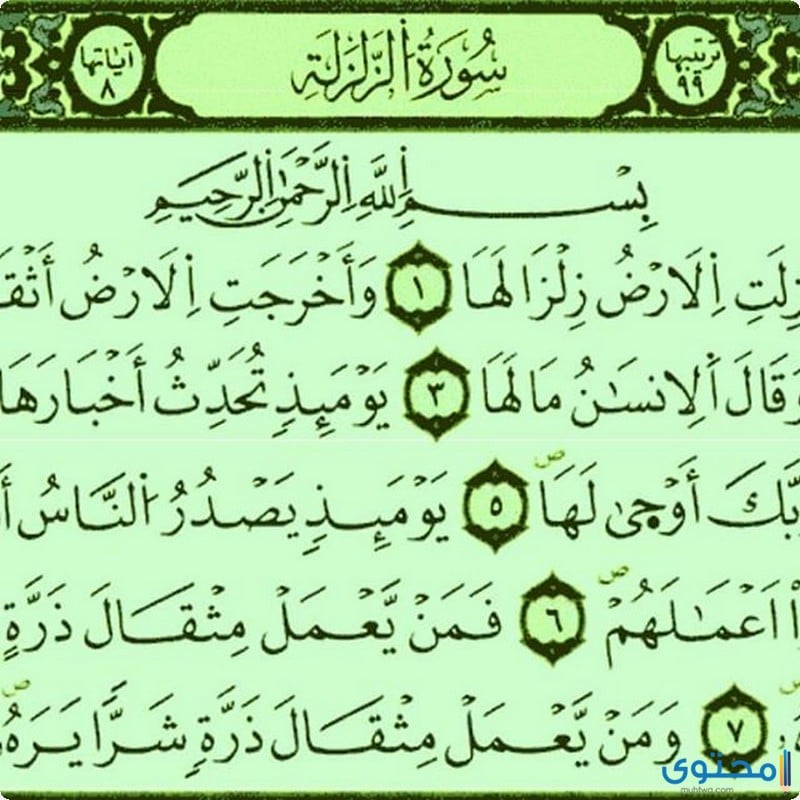 ترتيبها ٩٩ سُورَةُ اُ۬لزَّلْزَلَةِ آياتها ٨
بِسْمِ اِ۬للَّهِ اِ۬لرَّحْمَٰنِ اِ۬لرَّحِيمِ
زِلَتِ اِ۬لَارْضُ زِلْزَالَهَا ١ وَأَخْرَجَتِ اِ۬لَارْضُ أَثْقَا
وَقَالَ اَ۬لِانسَٰنُ مَا لَهَا ٣ يَوْمَئِذٍ تُحَدِّثُ أَخْبَارَهَا
بَّكَ أَوْحىٰ لَهَا ص ٥ يَوْمَئِذٍ يَصْدُرُ اُ۬لنَّاسُ
اَعْمَٰلَهُمْ ص ٦ فَمَنْ يَّعْمَلْ مِثْقَالَ ذَرَّةٍ
٧ وَمَنْ يَّعْمَلْ مِثْقَالَ ذَرَّةٍ شَرّاً يَرَهُۥ ص
محتوى
muhtwa.com